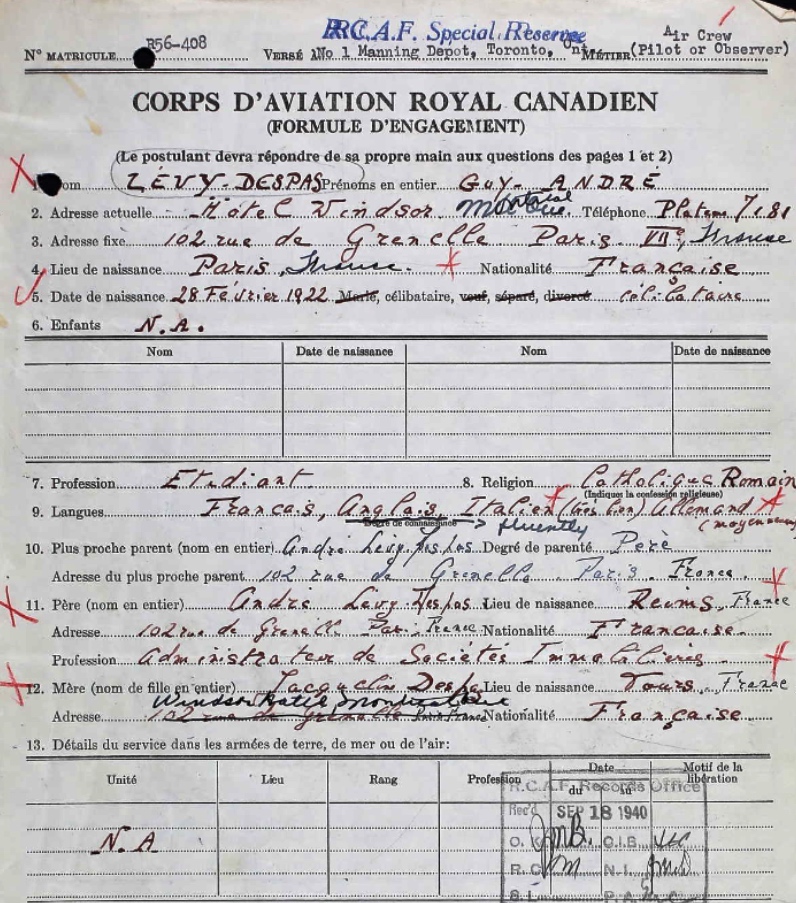 R.C.A.F. Special Reserve
Air Crew
No MATRICULE R56-408 VERSÉ À No 1 Manning Depot, Toronto, Ont MÉTIER (Pilot or Observer)
CORPS D'AVIATION ROYAL CANADIEN
(FORMULE D'ENGAGEMENT)
(Le postulant devra répondre de sa propre main aux questions des pages 1 et 2)
1. Nom LÉVY-DESPAS Prénoms en entier GUY-ANDRÉ
2. Adresse actuelle - Hôtel Windsor Montreal Que. Téléphone Plateau 7181
3. Adresse fixe 102 rue de Grenelle Paris VIIe, France
4. Lieu de naissance Paris, France. Nationalité Française
5. Date de naissance 28 Février 1922 Marié, célibataire, veuf, séparé, divorcé célibataire
6. Enfants N.A.
Nom Date de naissance Nom Date de naissance
7. Profession Etudiant 8. Religion Catholique Romain
(Indiquez la confession religieuse)
9. Langues Francais, Anglais, Italien (très bien) Allemand
Degré de connaissance fluently (moyennement)
10. Plus proche parent (nom en entier) André Lévy-Despas Degré de parenté Père
Adresse du plus proche parent 102 rue de Grenelle. Paris. France
11. Père (nom en entier) André Lévy-Despas Lieu de naissance Reims, France
Adresse 102 rue de Grenelle Paris France Nationalité Francaise.
Profession Administrateur de Sociétés Immobilières
12. Mère (nom de fille en entier) Jacqueline Despas Lieu de naissance Tours, France
Windsor Hotel Montreal Que
Adresse 102 rue de Grenelle Paris France Nationalité Française
13. Détails du service dans les armées de terre, de mer ou de l'air:
Unité Lieu Rang Profession Date du au Motif de la libération
N.A
R.C.A.F. Records Office
Rec'd SEP 18 1940
O. K. C.I.B.
R.C. N.I.
S.I. P.A.